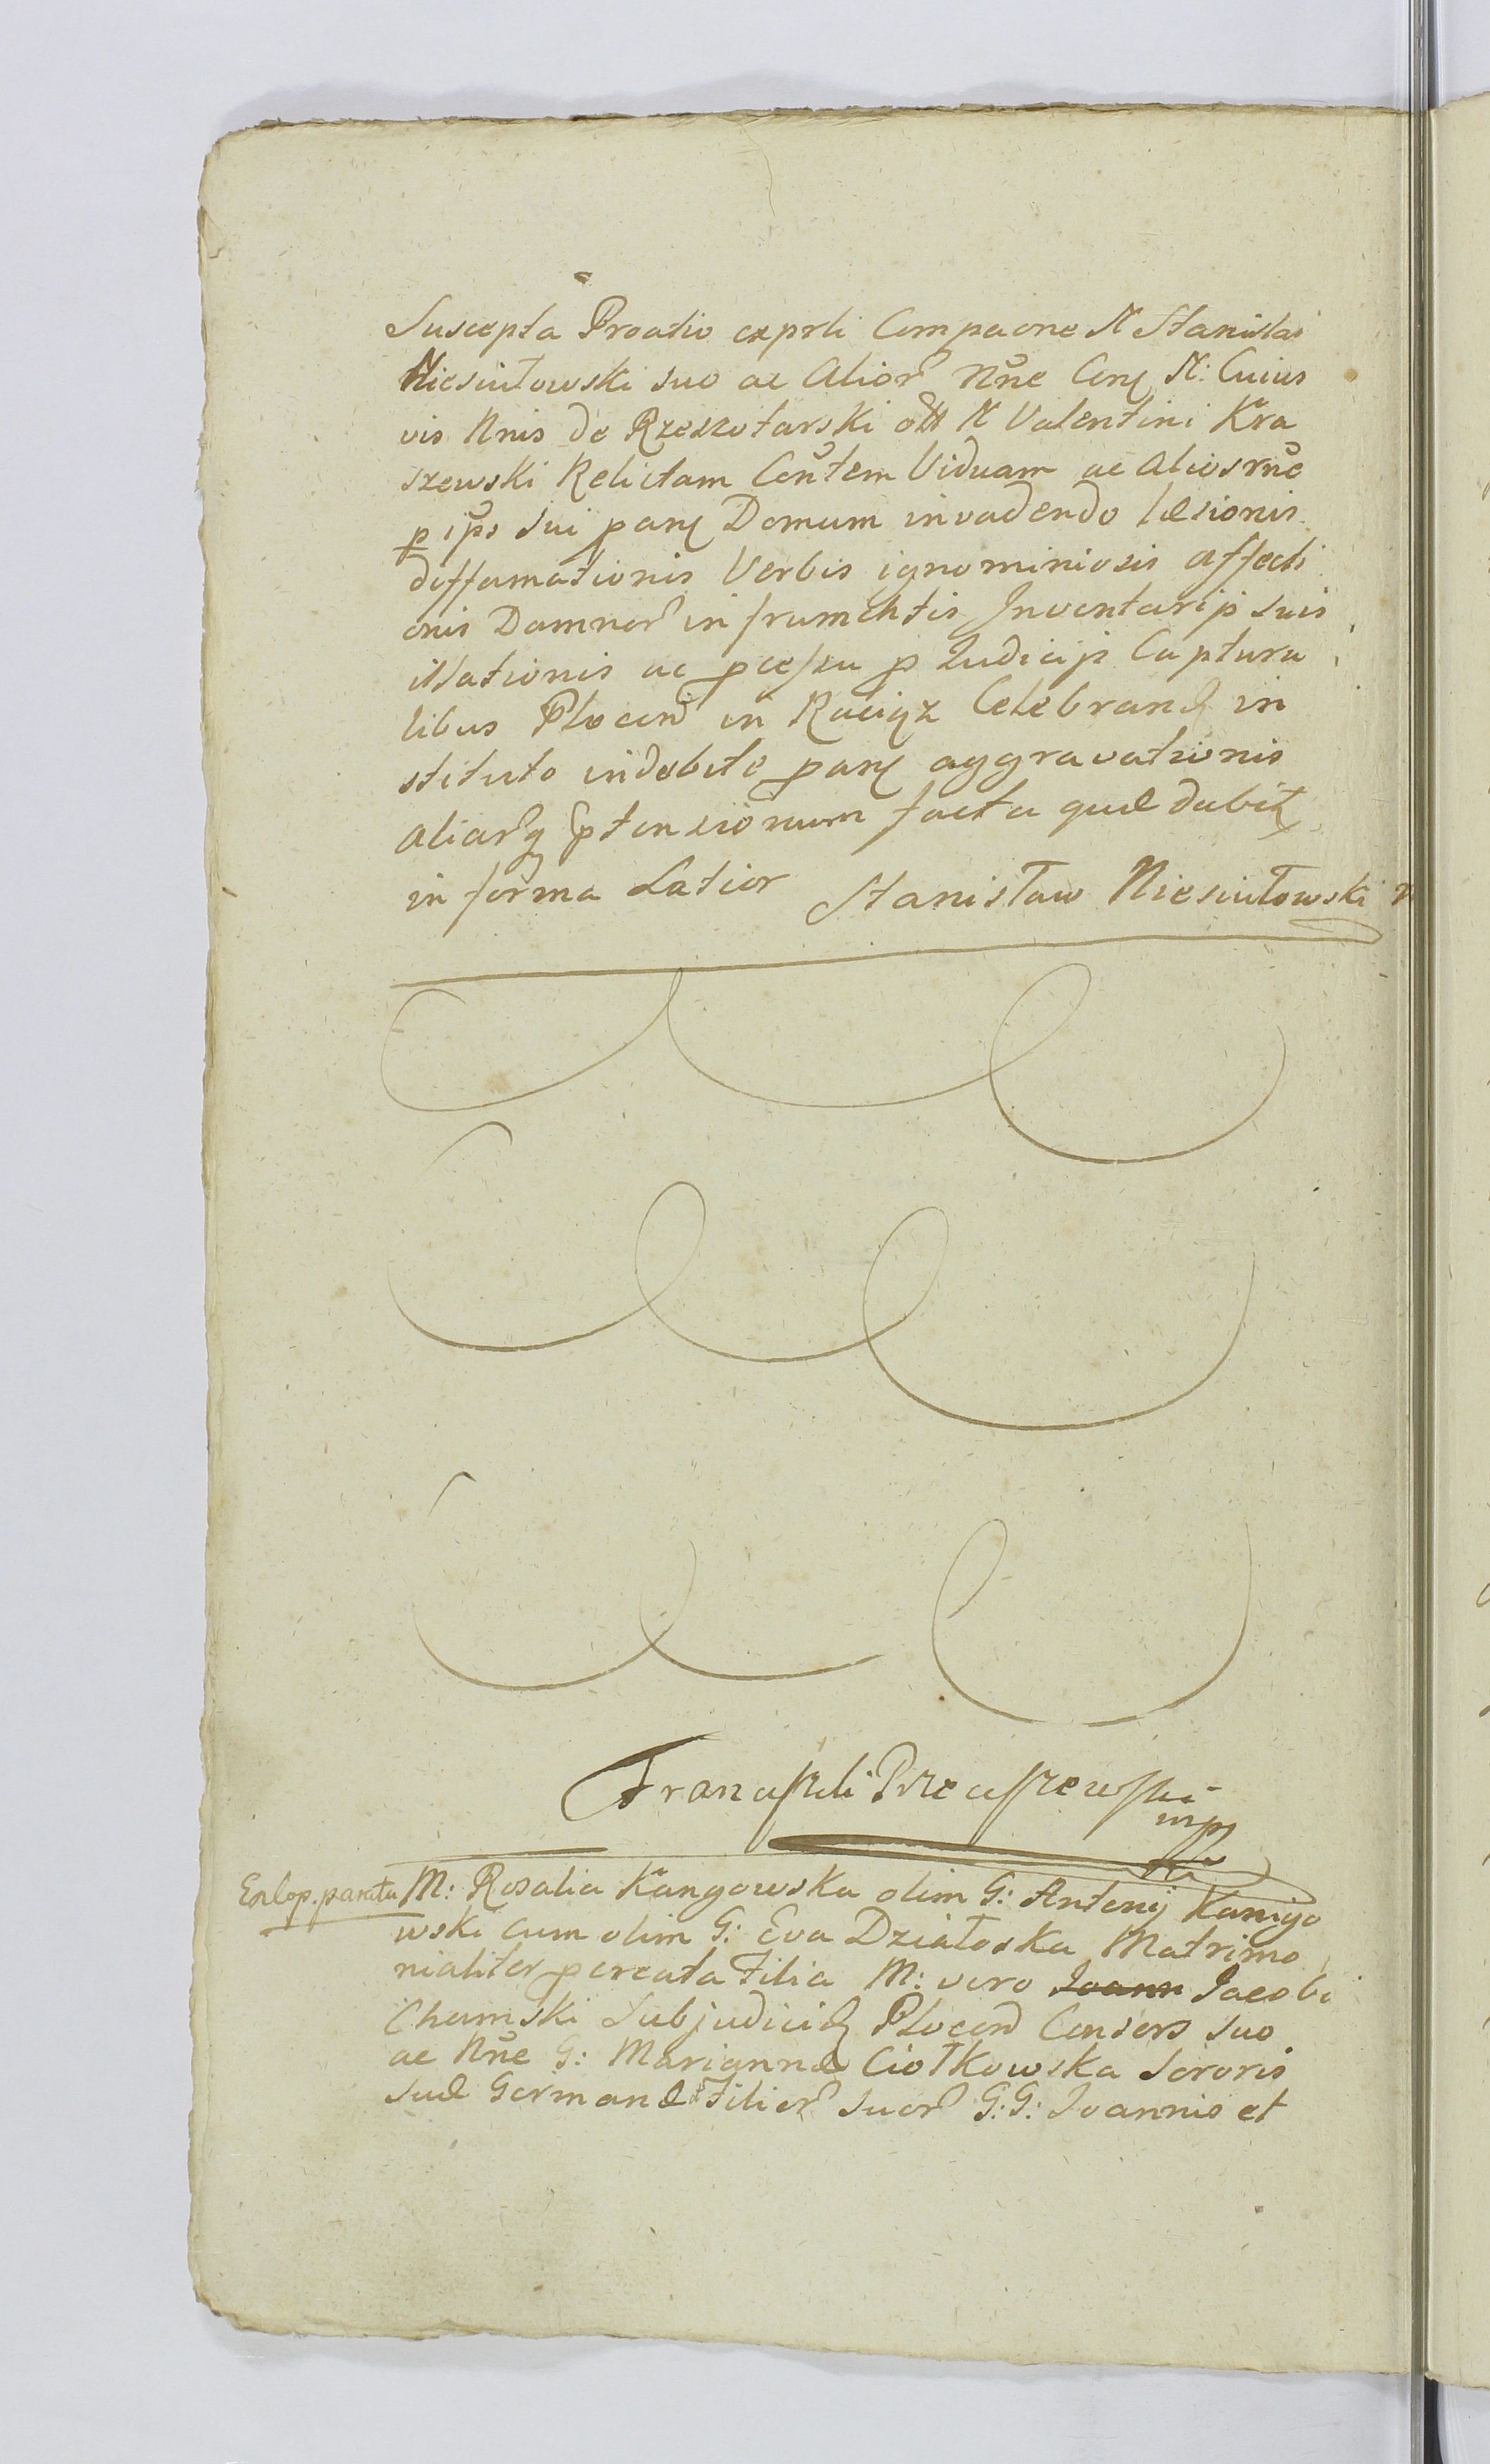 Suscepta Proatio exprli Compaone N Stanislai
Niesiułowski suo ac Alior Nne Cony N: Cuius
vis Nnis de Rzeszotarski olt N Valentini Kra
szewski Relictam Contem Viduam ac Alios rne
p ips sui pany Domum invadendo læsionis
deffamationis Verbis ignominiosis affecti
onis Damnor in frumentis Inventarijs suis
illationis ac pcessu p Judicijs Captura
libus Plocen in Raciąz Celebrand in
stituto indebite pany aggravationis
aliarq ptensionum facta quæ dabit
in forma Latior Stanisław Niesiułowski
Franciszek mp
Enlop. parata M: Rosalia Kangowska olim G: Antonij Kanigo
wski cum olim G: Eva Działoska Matrimo
nialiter pcreata Filia M: vero Joann Jacobi
Chamski Subjudicis Plocen Consors suo
ac Nne G: Mariannæ Ciołkowska Sororis
suæ Germanæ Filior suor G:G: Joannis et